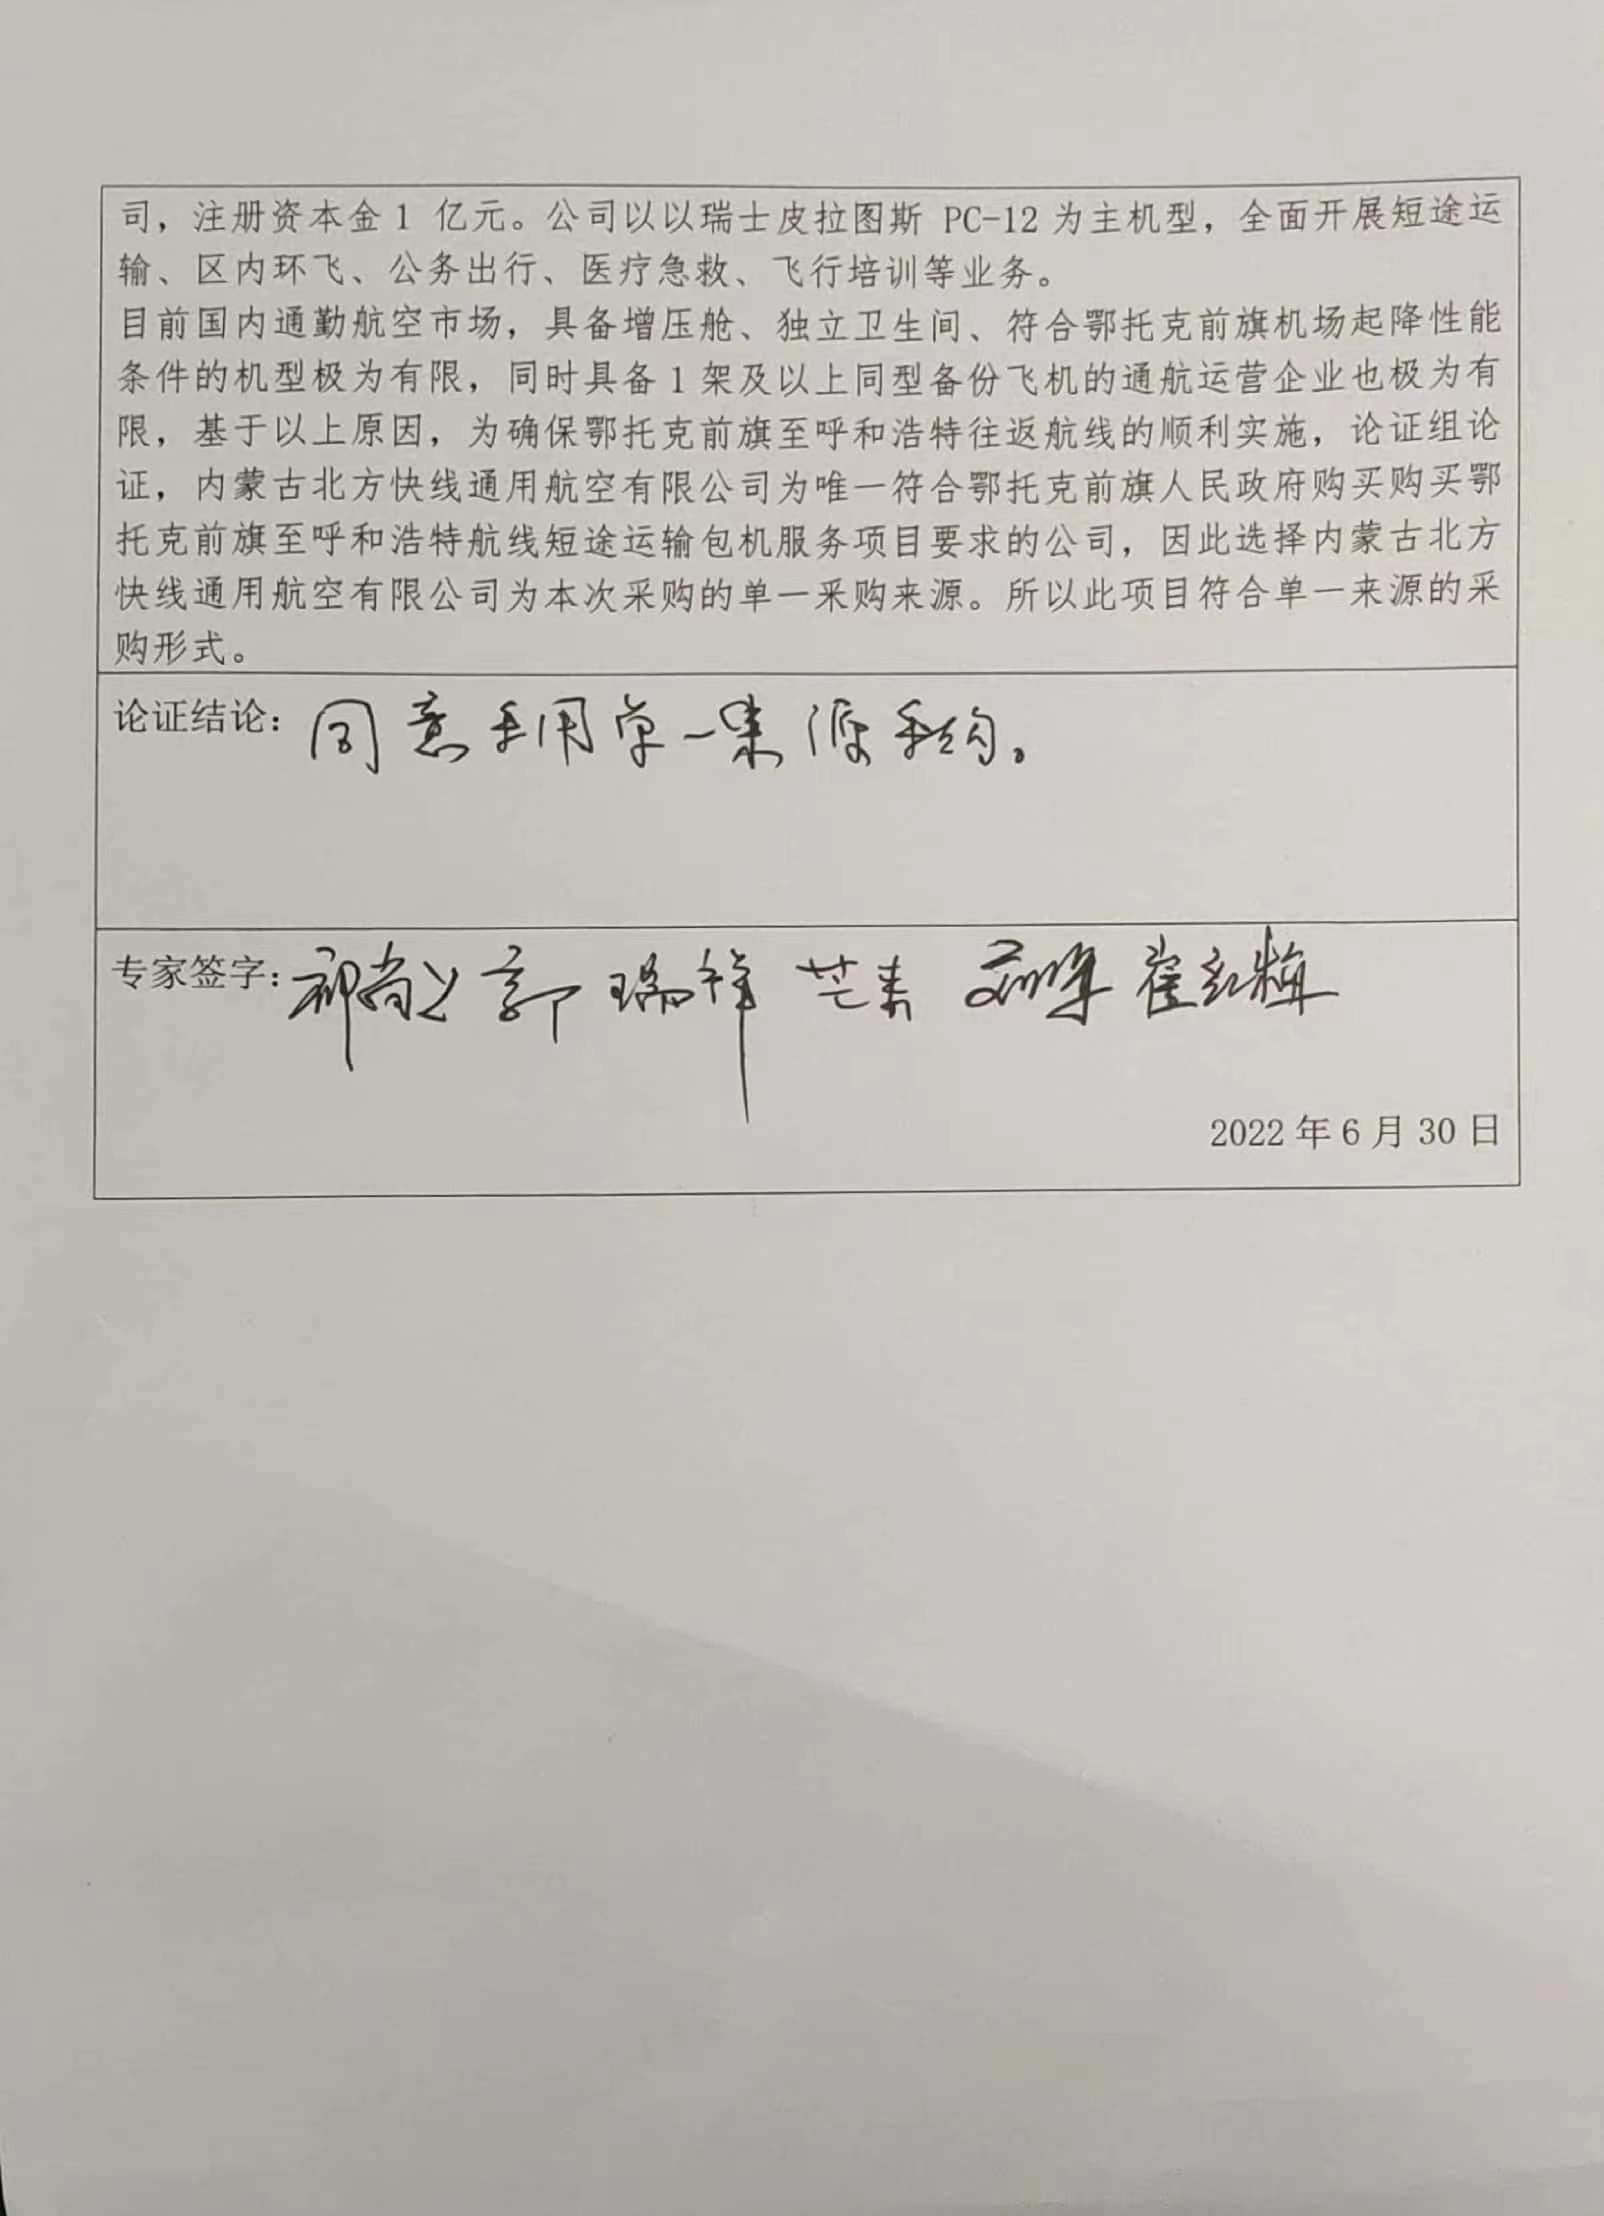 司，注册资本金1 亿元。公司以以瑞士皮拉图斯 PC-12为主机型，全面开展短途运
输、区内环飞、公务出行、医疗急救、飞行培训等业务。
目前国内通勤航空市场，具备增压舱、独立卫生间、符合鄂托克前旗机场起降性能
条件的机型极为有限，同时具备1架及以上同型备份飞机的通航运营企业也极为有
限，基于以上原因，为确保鄂托克前旗至呼和浩特往返航线的顺利实施，论证组论
证，内蒙古北方快线通用航空有限公司为唯一符合鄂托克前旗人民政府购买购买鄂
托克前旗至呼和浩特航线短途运输包机服务项目要求的公司，因此选择内蒙古北方
快线通用航空有限公司为本次采购的单一采购来源。所以此项目符合单一来源的采
购形式。
论证结论：同意采用单一来源采购。
专家签字：郭瑞祥 芒来
2022年6月30日